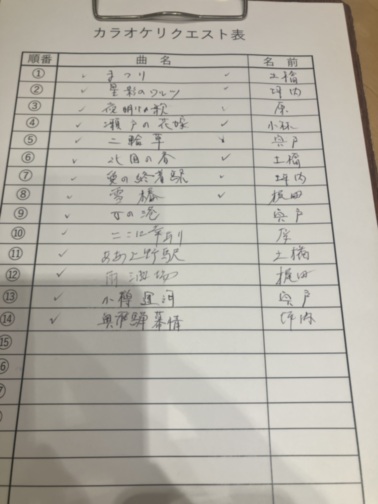 カラオケリクエスト表
順番 曲名 名前
① ✓ まつり ✓ 土橋
② ✓ 星影のワルツ ✓ 坪内
③ ✓ 夜明けの歌 原
④ ✓ 瀬戸の花嫁 ✓ 小林
⑤ ✓ 二輪草 宍戸
⑥ ✓ 北国の春 ✓ 土橋
⑦ ✓ 愛の終着駅 坪内
⑧ ✓ 雪椿 ✓ 梶田
⑨ ✓ 女の 宍戸
⑩ ✓ ここに幸あり 原
⑪ ✓ ああ上野駅 土橋
⑫ ✓ 梶田
⑬ ✓ 小樽運河 宍戸
⑭ ✓ 奥飛騨慕情 坪内
⑮